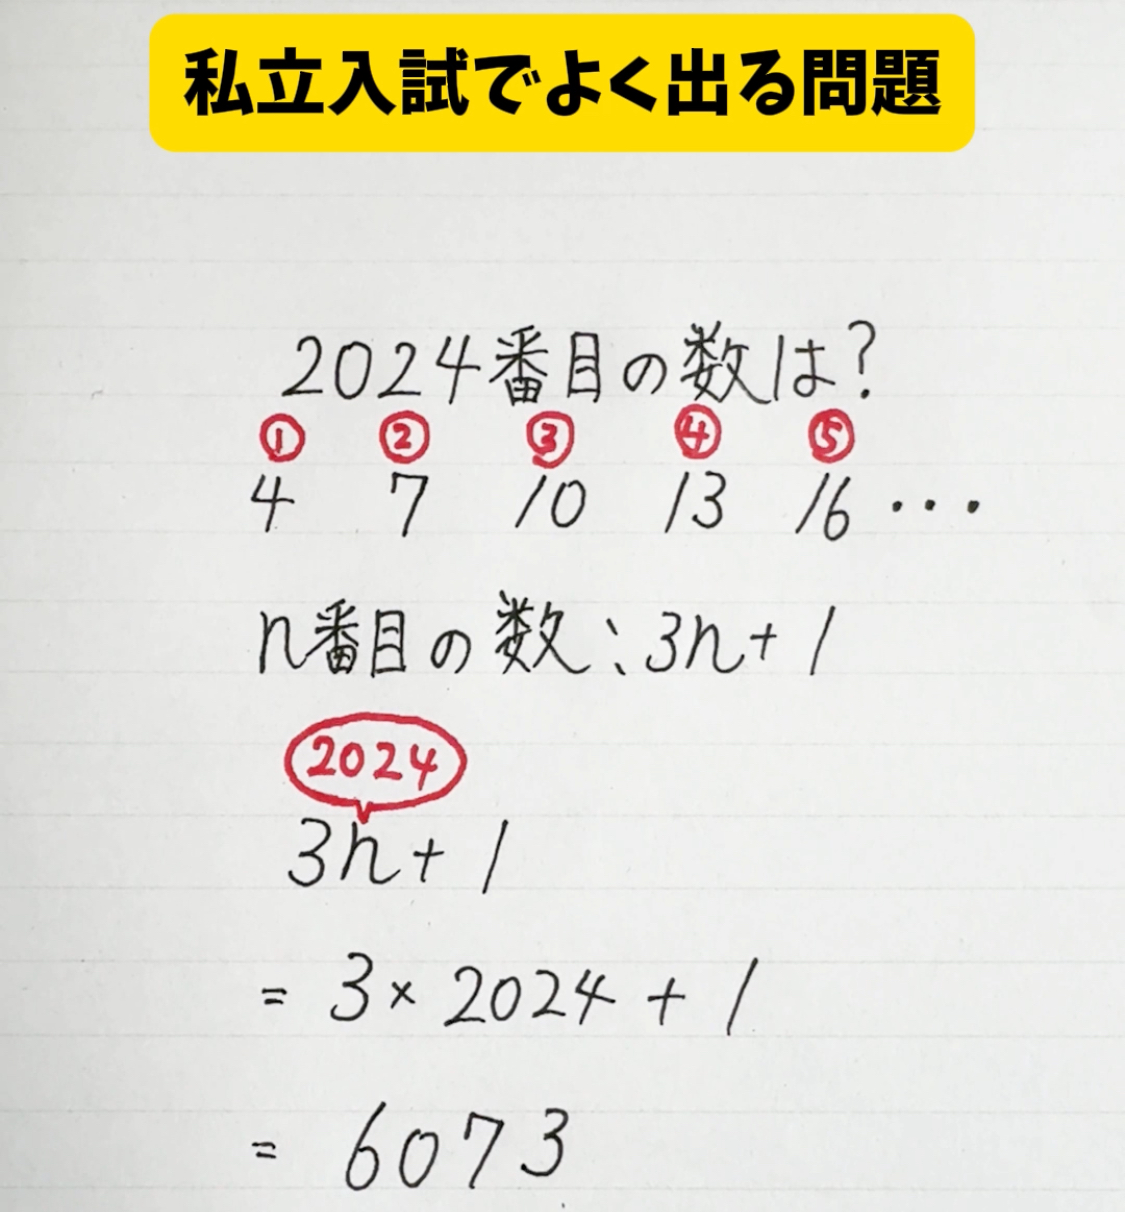 私立入試でよく出る問題
2024番目の数は?
① ② ③ ④ ⑤
4 7 10 13 16 ・・・
n番目の数:3n+1
2024
3n+1
= 3×2024+1
= 6073